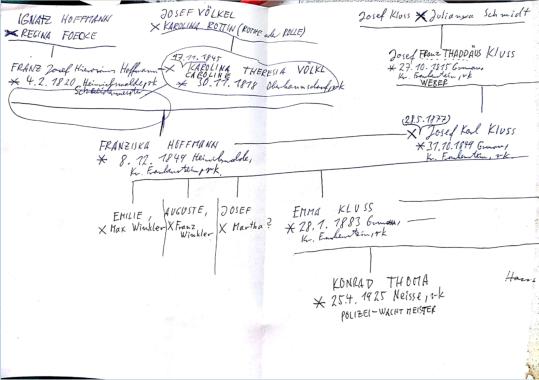 IGNATZ HOFFMANN
X REGINA FOEOKE
JOSEF VÖLKEL
X KAROLINA ROTTIN (ROTHE oder ROLLE)
Josef Kluss X Julianna Schmidt
FRANZ Josef Hieronimus Hoffmann
* 4.2.1820, rk
17.11.1845
X KAROLINA THERESIA VÖLKL
CAROLINE
* 30.11.1818 rk
Josef Franz THADDÄUS KLUSS
* 27.10.1815
Kr. Frankenstein, rk
WEBER
FRANZISKA HOFFMANN
* 8.12.1849
Kr. Frankenstein, rk
(28.5.1877)
X Josef Karl KLUSS
* 31.10.1849
Kr. Frankenstein, rk
EMILIE,
X Max Winkler
AUGUSTE,
X Franz
Winkler
JOSEF
X Martha?
EMMA KLUSS
* 28.1.1883
Kr. Frankenstein, rk
KONRAD THOMA
* 25.4.1925 Neisse, rk
POLIZEI-WACHTMEISTER